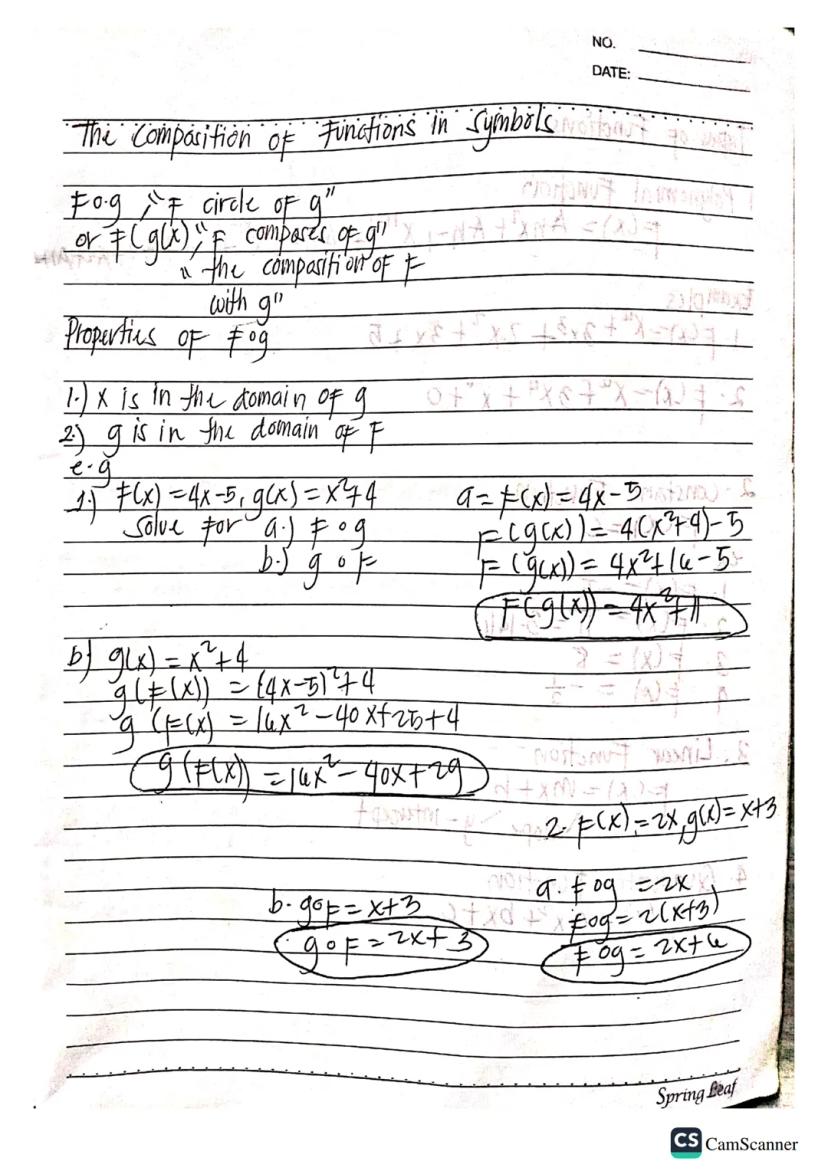 NO.
DATE:
The Composition of Functions in Symbols
Fog, "F circle of g"
or F(g(x), "F composes of g"
"the composition of F
with g"
Properties of Fog
1.) x is in the domain of g
2.) g is in the domain of F
e.g
1.) F(x) = 4x-5, g(x) = x²+4
Solve for a.) F o g
b.) g o F
a = F(x) = 4x-5
F(g(x)) = 4(x²+4)-5
F(g(x)) = 4x²+16-5
F(g(x)) = 4x²+11
b) g(x) = x²+4
g(F(x)) = (4x-5)²+4
g (F(x) = 16x²-40x+25+4
g(F(x)) = 16x²-40x+29
2. F(x) = 2x, g(x) = x+3
a. Fog = 2x
Fog = 2(x+3)
Fog = 2x+6
b. goF = x+3
goF = 2x+3
Spring Leaf
CS CamScanner